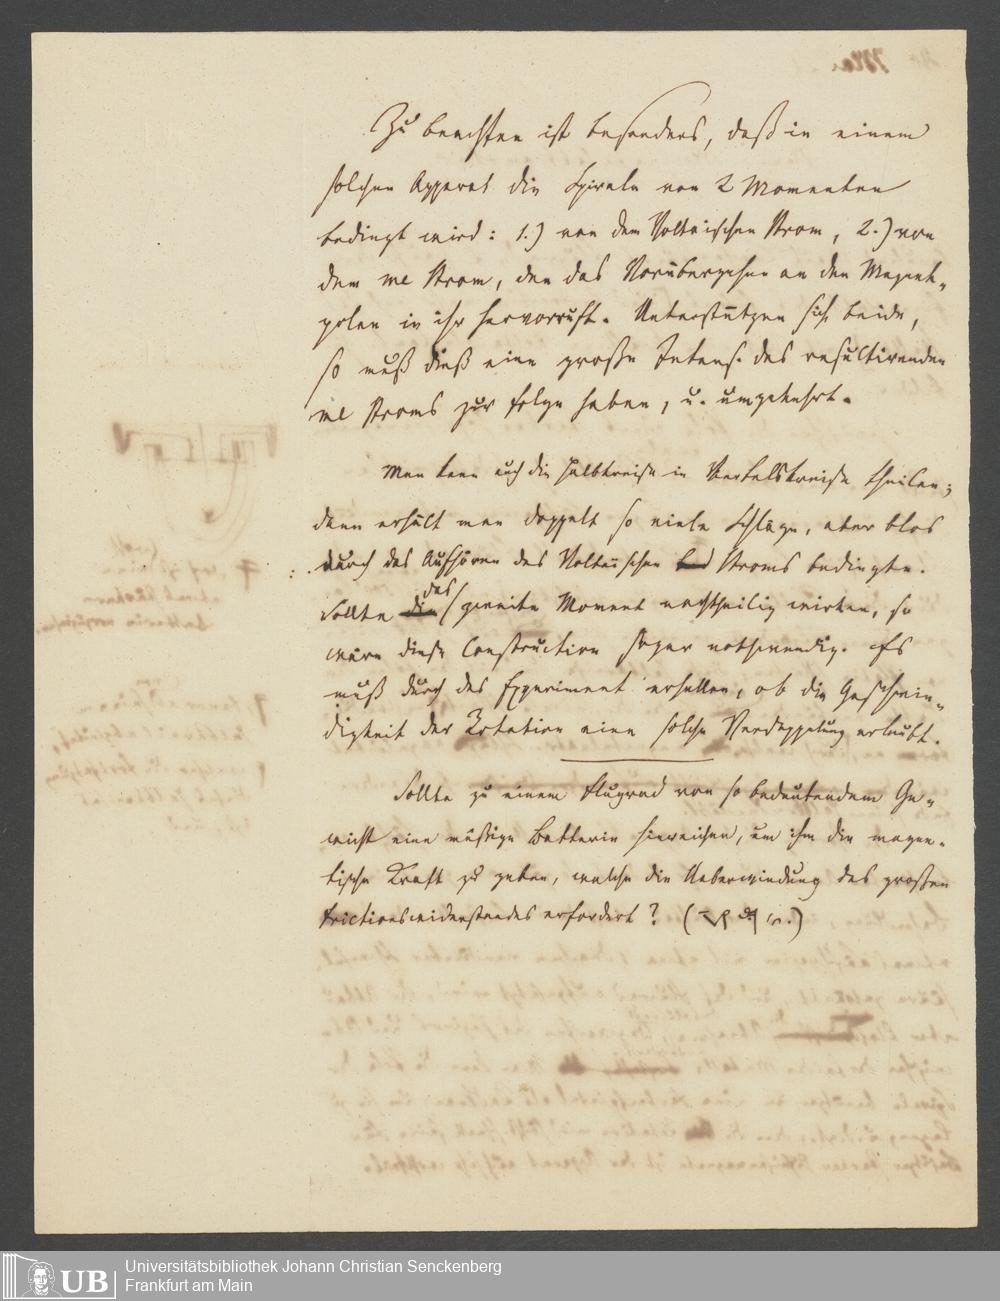 Zu beachten ist besonders, daß in einem
solchen Apparat die Spirale von 2 Momenten
bedingt wird: 1.) von dem Voltaischen Strom, 2.) von
dem me Strom, den das Vorübergehen an den Magnet-
polen in ihr hervorruft. Unterstützen sich beide,
so muß dieß eine große Intens. des resultirenden
me Stroms zur Folge haben, u. umgekehrt.
Man kann auch die Halbkreise in Viertelskreise theilen;
dann erhält man doppelt so viele Schläge, aber blos
durch das Aufhören des Voltaischen Stroms bedingte.
Sollte die das zweite Moment nachtheilig wirken, so
wäre diese Construction sogar nothwendig. Es
muß durch das Experiment erhellen, ob die Geschwin-
digkeit der Rotation eine solche Verdoppelung erlaubt.
Sollte zu einem Flugrad von so bedeutendem Ge-
wicht eine mäßige Batterie hinreichen, um ihm die magne-
tische Kraft zu geben, welche die Ueberwindung des großen
Frictionswiderstandes erfordert?
Universitätsbibliothek Johann Christian Senckenberg
UB Frankfurt am Main